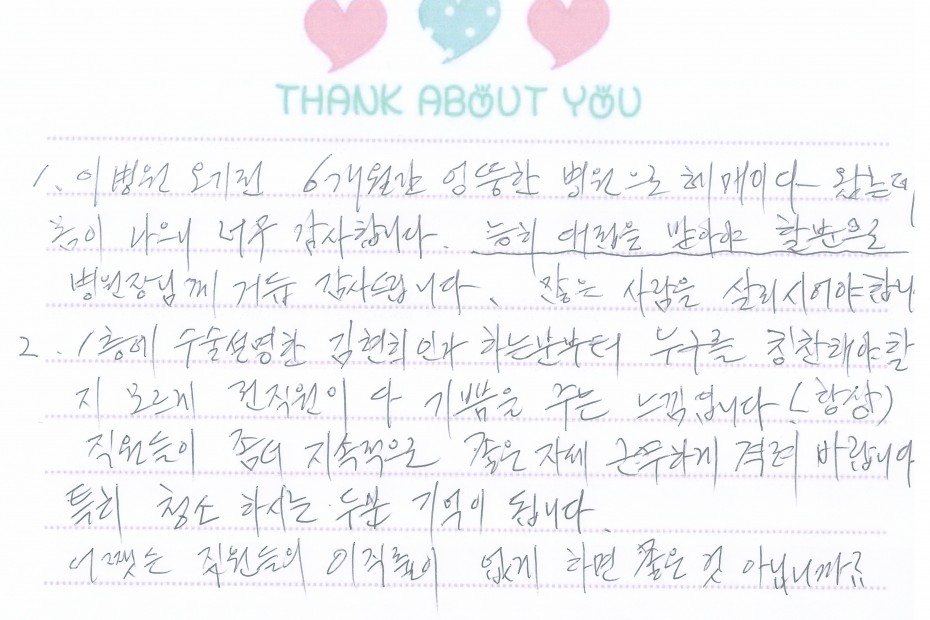 THANK ABOUT YOU
1. 이 병원 오기전 6개월간 엉뚱한 병원으로 헤매이다 왔는데
흠이 나으니 너무 감사합니다. 능히 대접을 받아야 할분으로
병원장님께 거듭 감사드립니다. 많은 사람을 살리시어야합니
2. 1층에 수술설명한 김현희인가 하는분부터 누구를 칭찬해야할
지 모르게 전직원이 다 기쁨을 주는 느낌입니다 (항상)
직원들이 좀더 지속적으로 좋은 자세 근무하게 격려 바랍니다
특히 청소 하시는 두분 기억이 됩니다.
어쨋든 직원들의 이직률이 없게 하면 좋은 것 아닙니까?